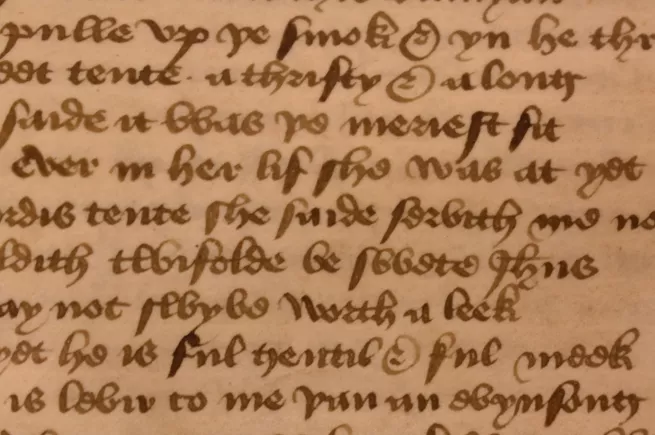 pulle vp þe smok & yn he thr
eet tente a thrifty & a long
saide it was þe meriest fit
Ever in her lif she was at yet
rdis tente she saide servith me no
ldith twifolde be swete Jhus
ay not swyve worth a leek
yet he is ful gentil & ful meek
is levir to me þan an evynsong